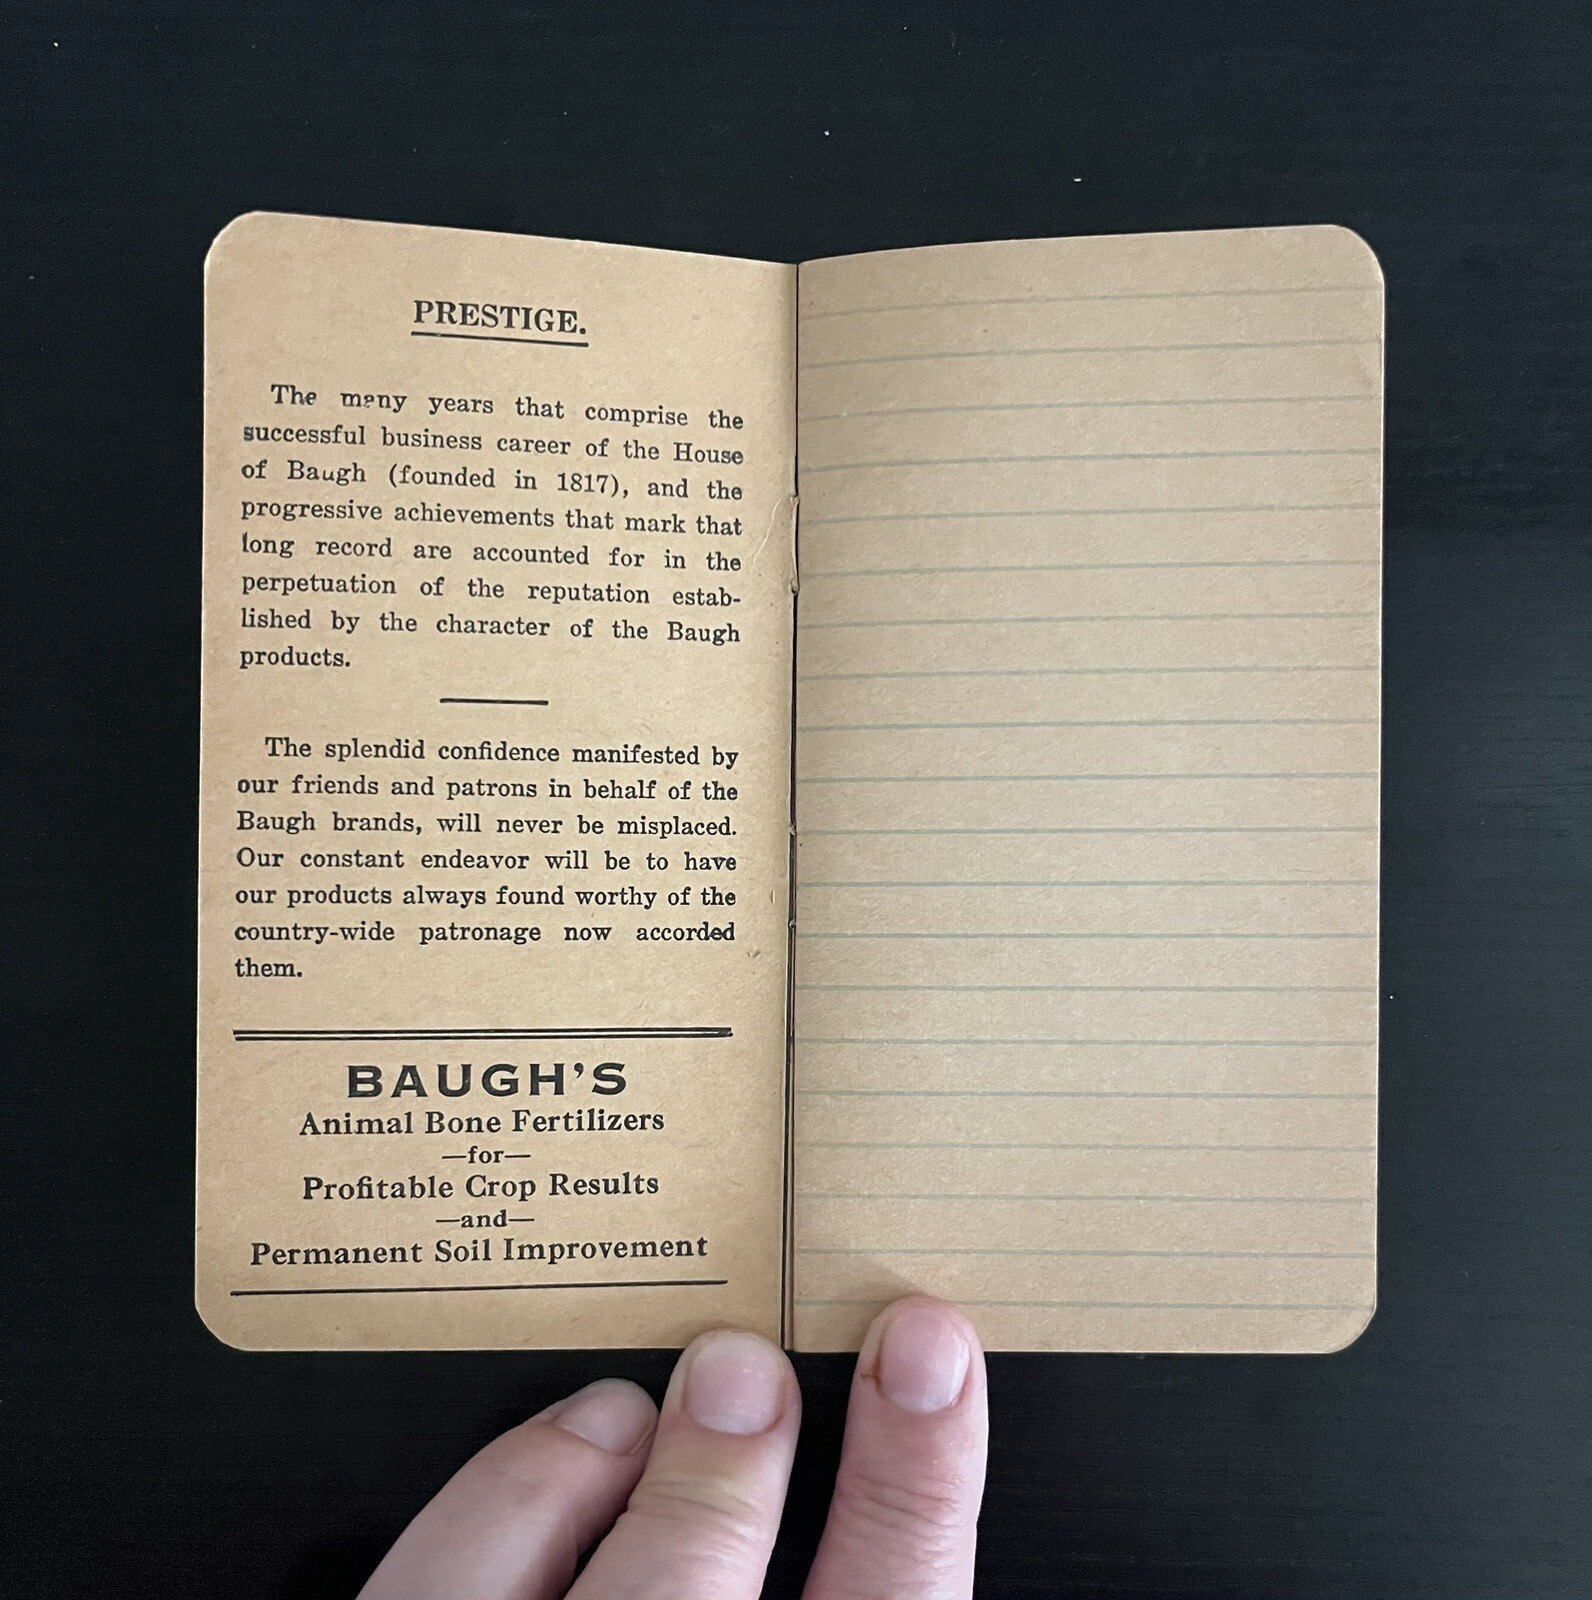 PRESTIGE.
The many years that comprise the
successful business career of the House
of Baugh (founded in 1817), and the
progressive achievements that mark that
long record are accounted for in the
perpetuation of the reputation estab-
lished by the character of the Baugh
products.
The splendid confidence manifested by
our friends and patrons in behalf of the
Baugh brands, will never be misplaced.
Our constant endeavor will be to have
our products always found worthy of the
country-wide patronage now accorded
them.
BAUGH'S
Animal Bone Fertilizers
—for—
Profitable Crop Results
—and—
Permanent Soil Improvement